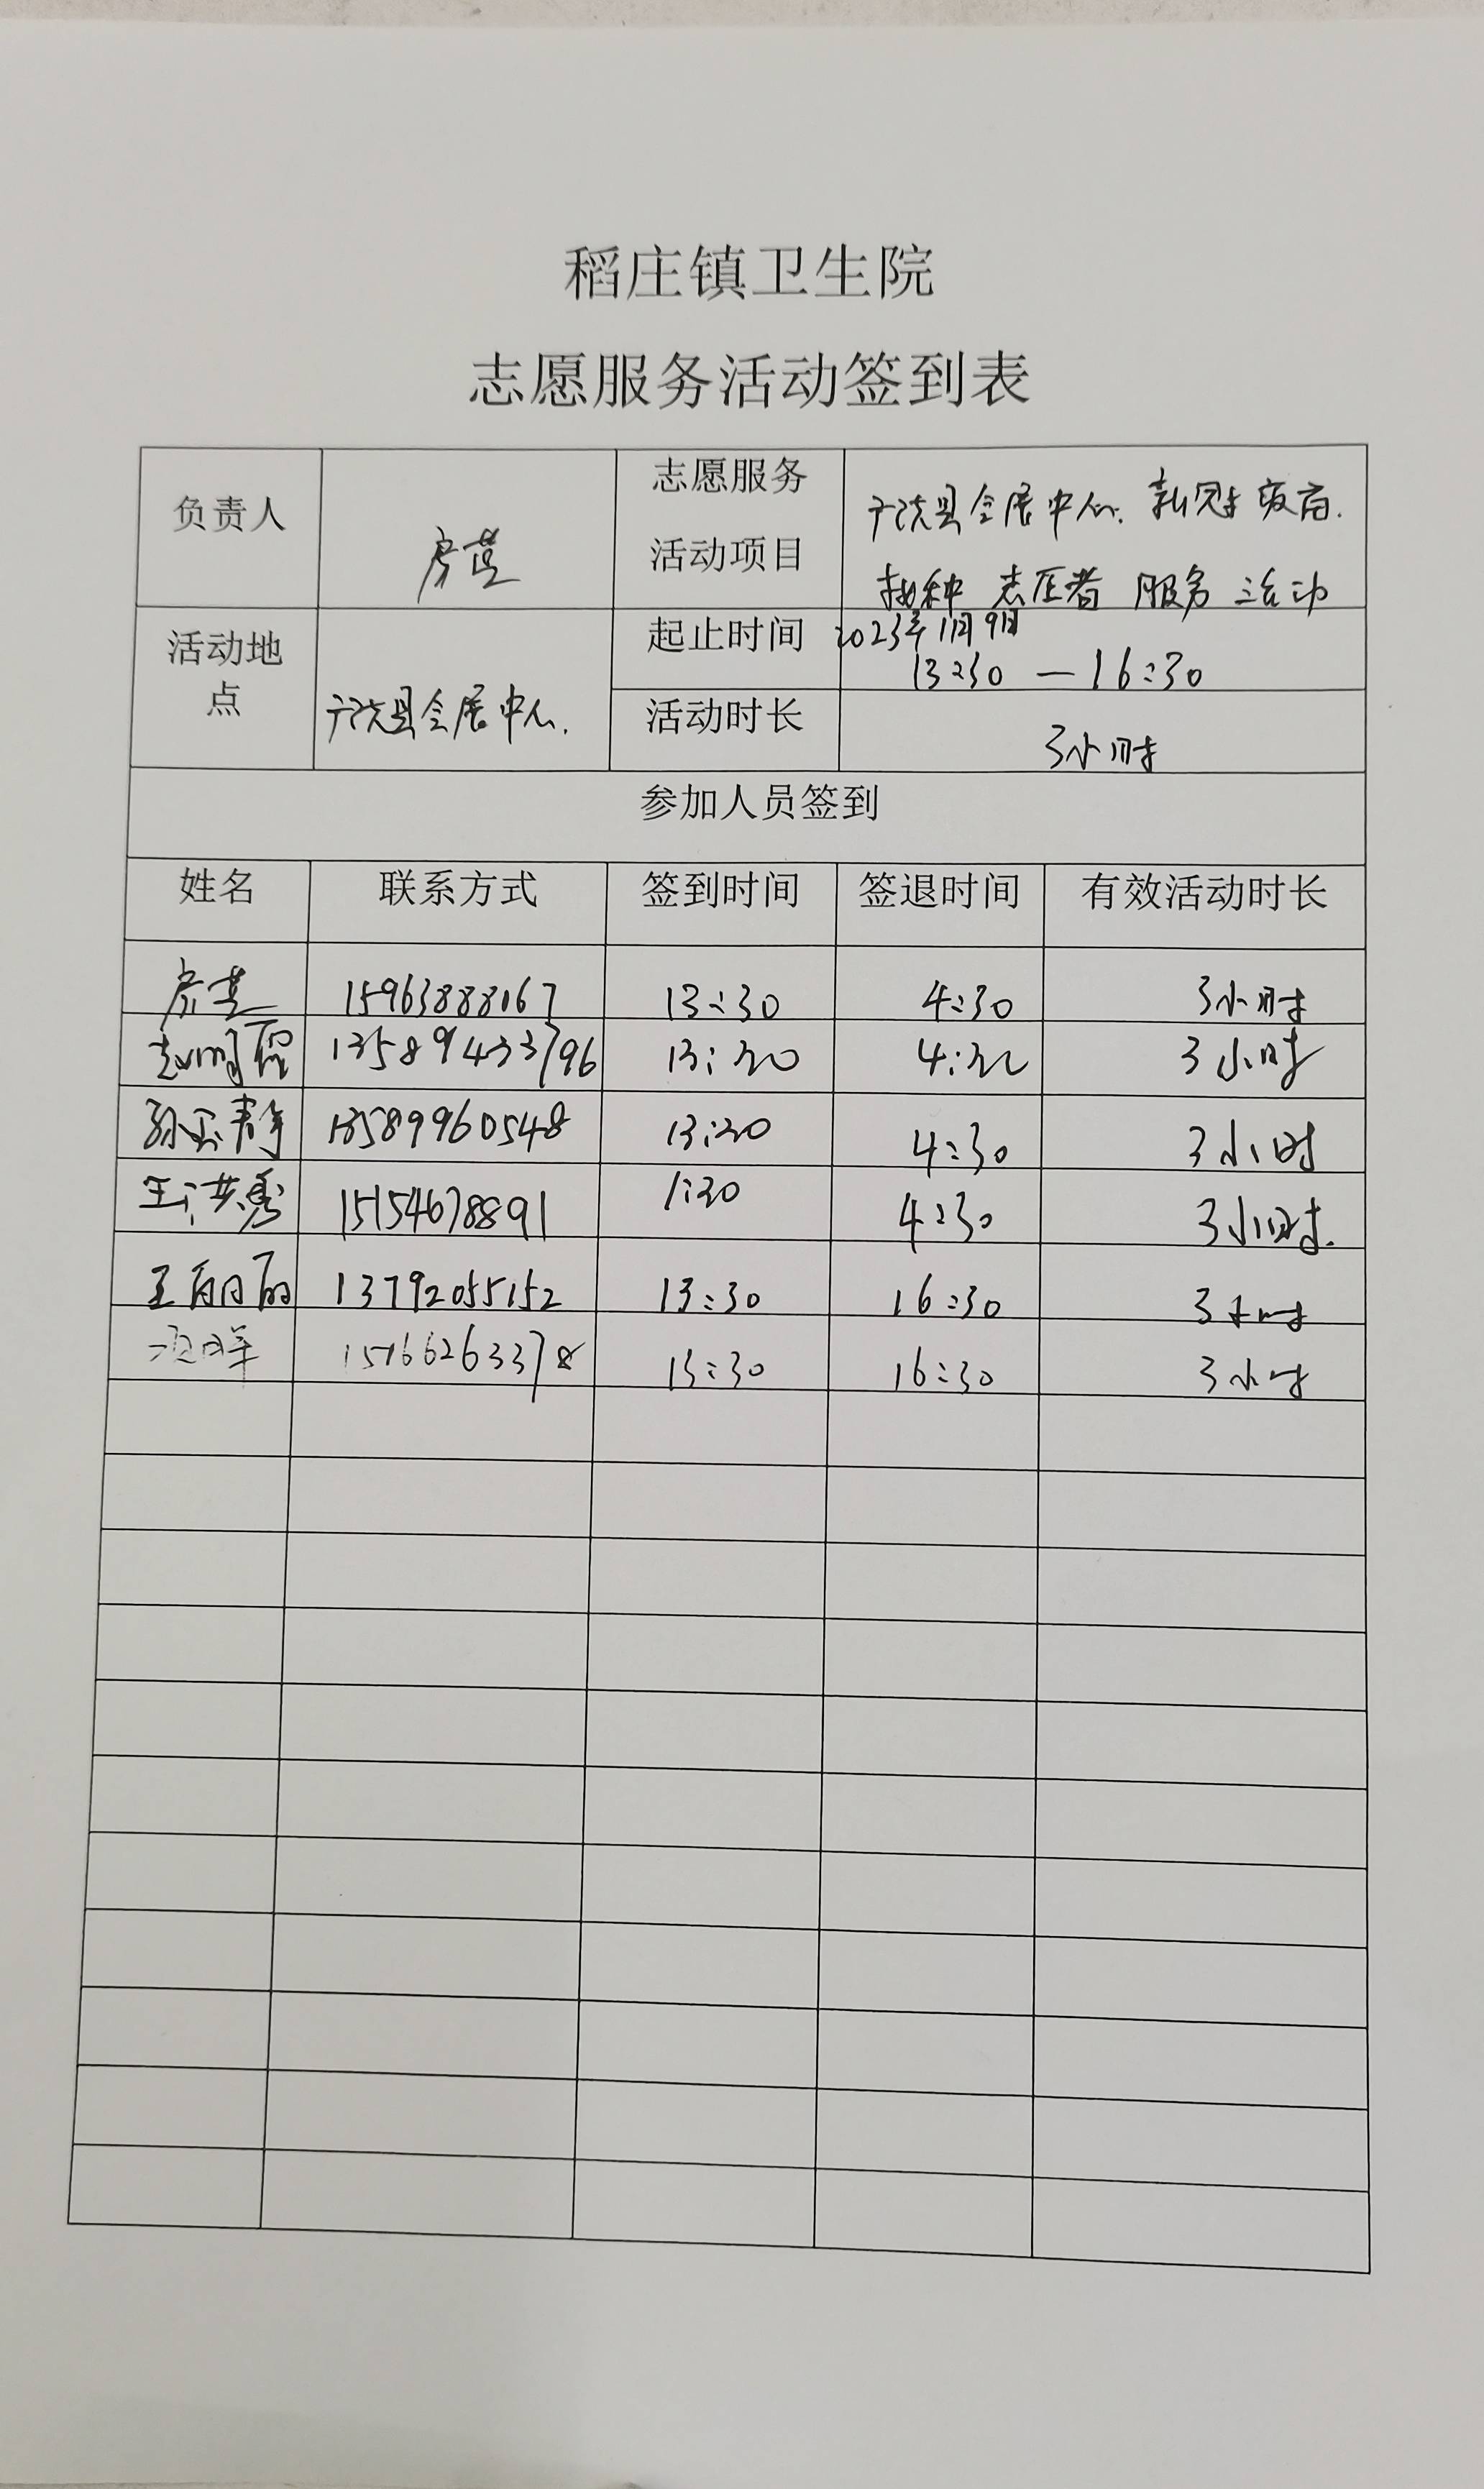 稻庄镇卫生院
志愿服务活动签到表
负责人 房莹 志愿服务活动项目 广饶县会展中心.新冠疫苗.
接种 志愿者 服务 活动
活动地点 广饶县会展中心. 起止时间 2023年11月9日
13:30 — 16:30
活动时长 3小时
参加人员签到
姓名 联系方式 签到时间 签退时间 有效活动时长
房莹 15963888167 13:30 4:30 3小时
13589433796 13:30 4:30 3小时
孙玉静 13589960548 13:30 4:30 3小时
王洪秀 15154678891 1:30 4:30 3小时.
王丽丽 13792055152 13:30 16:30 3小时
15166263378 13:30 16:30 3小时